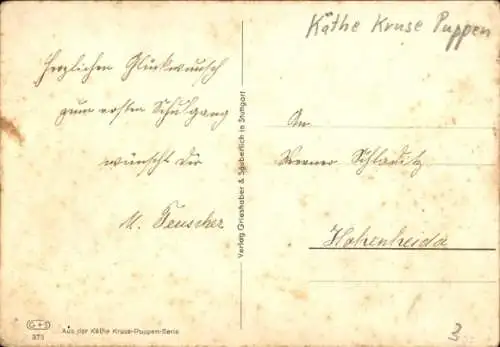 Käthe Kruse Puppen
Herzlichen Glückwunsch
zum ersten Schulgang
wünscht Dir
M. Teuscher
An
Werner Schladitz
Hohenheida
Verlag Grieshaber & Säuberlich in Stuttgart
G+S
373
Aus der Käthe Kruse-Puppen-Serie